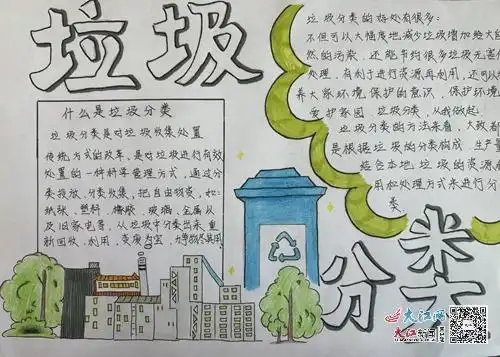 垃圾
什么是垃圾分类
垃圾分类是对垃圾收集处置
传统方式的改革,是对垃圾进行有效
处置的一种科学管理方式,通过分
类投放、分类收集,把有用物资,如:
纸张、塑料、橡胶、玻璃、金属以
及旧家电等,从垃圾中分类出来重
新回收、利用,变废为宝,力争物尽其用
垃圾分类的好处有很多:
不但可以大幅度地减少垃圾增加给大自
然的污染,还能节约很多垃圾无害化
处理,有利于进行资源再利用,还可以培
养大家环境保护的意识,保护环境
爱护家园,垃圾分类,从我做起。
垃圾分类的方法来看,大致都
是根据垃圾的分类构成、生产量
结合本地垃圾的资源
用和处理方式来进行分
类。
分类
大江网
大江新闻